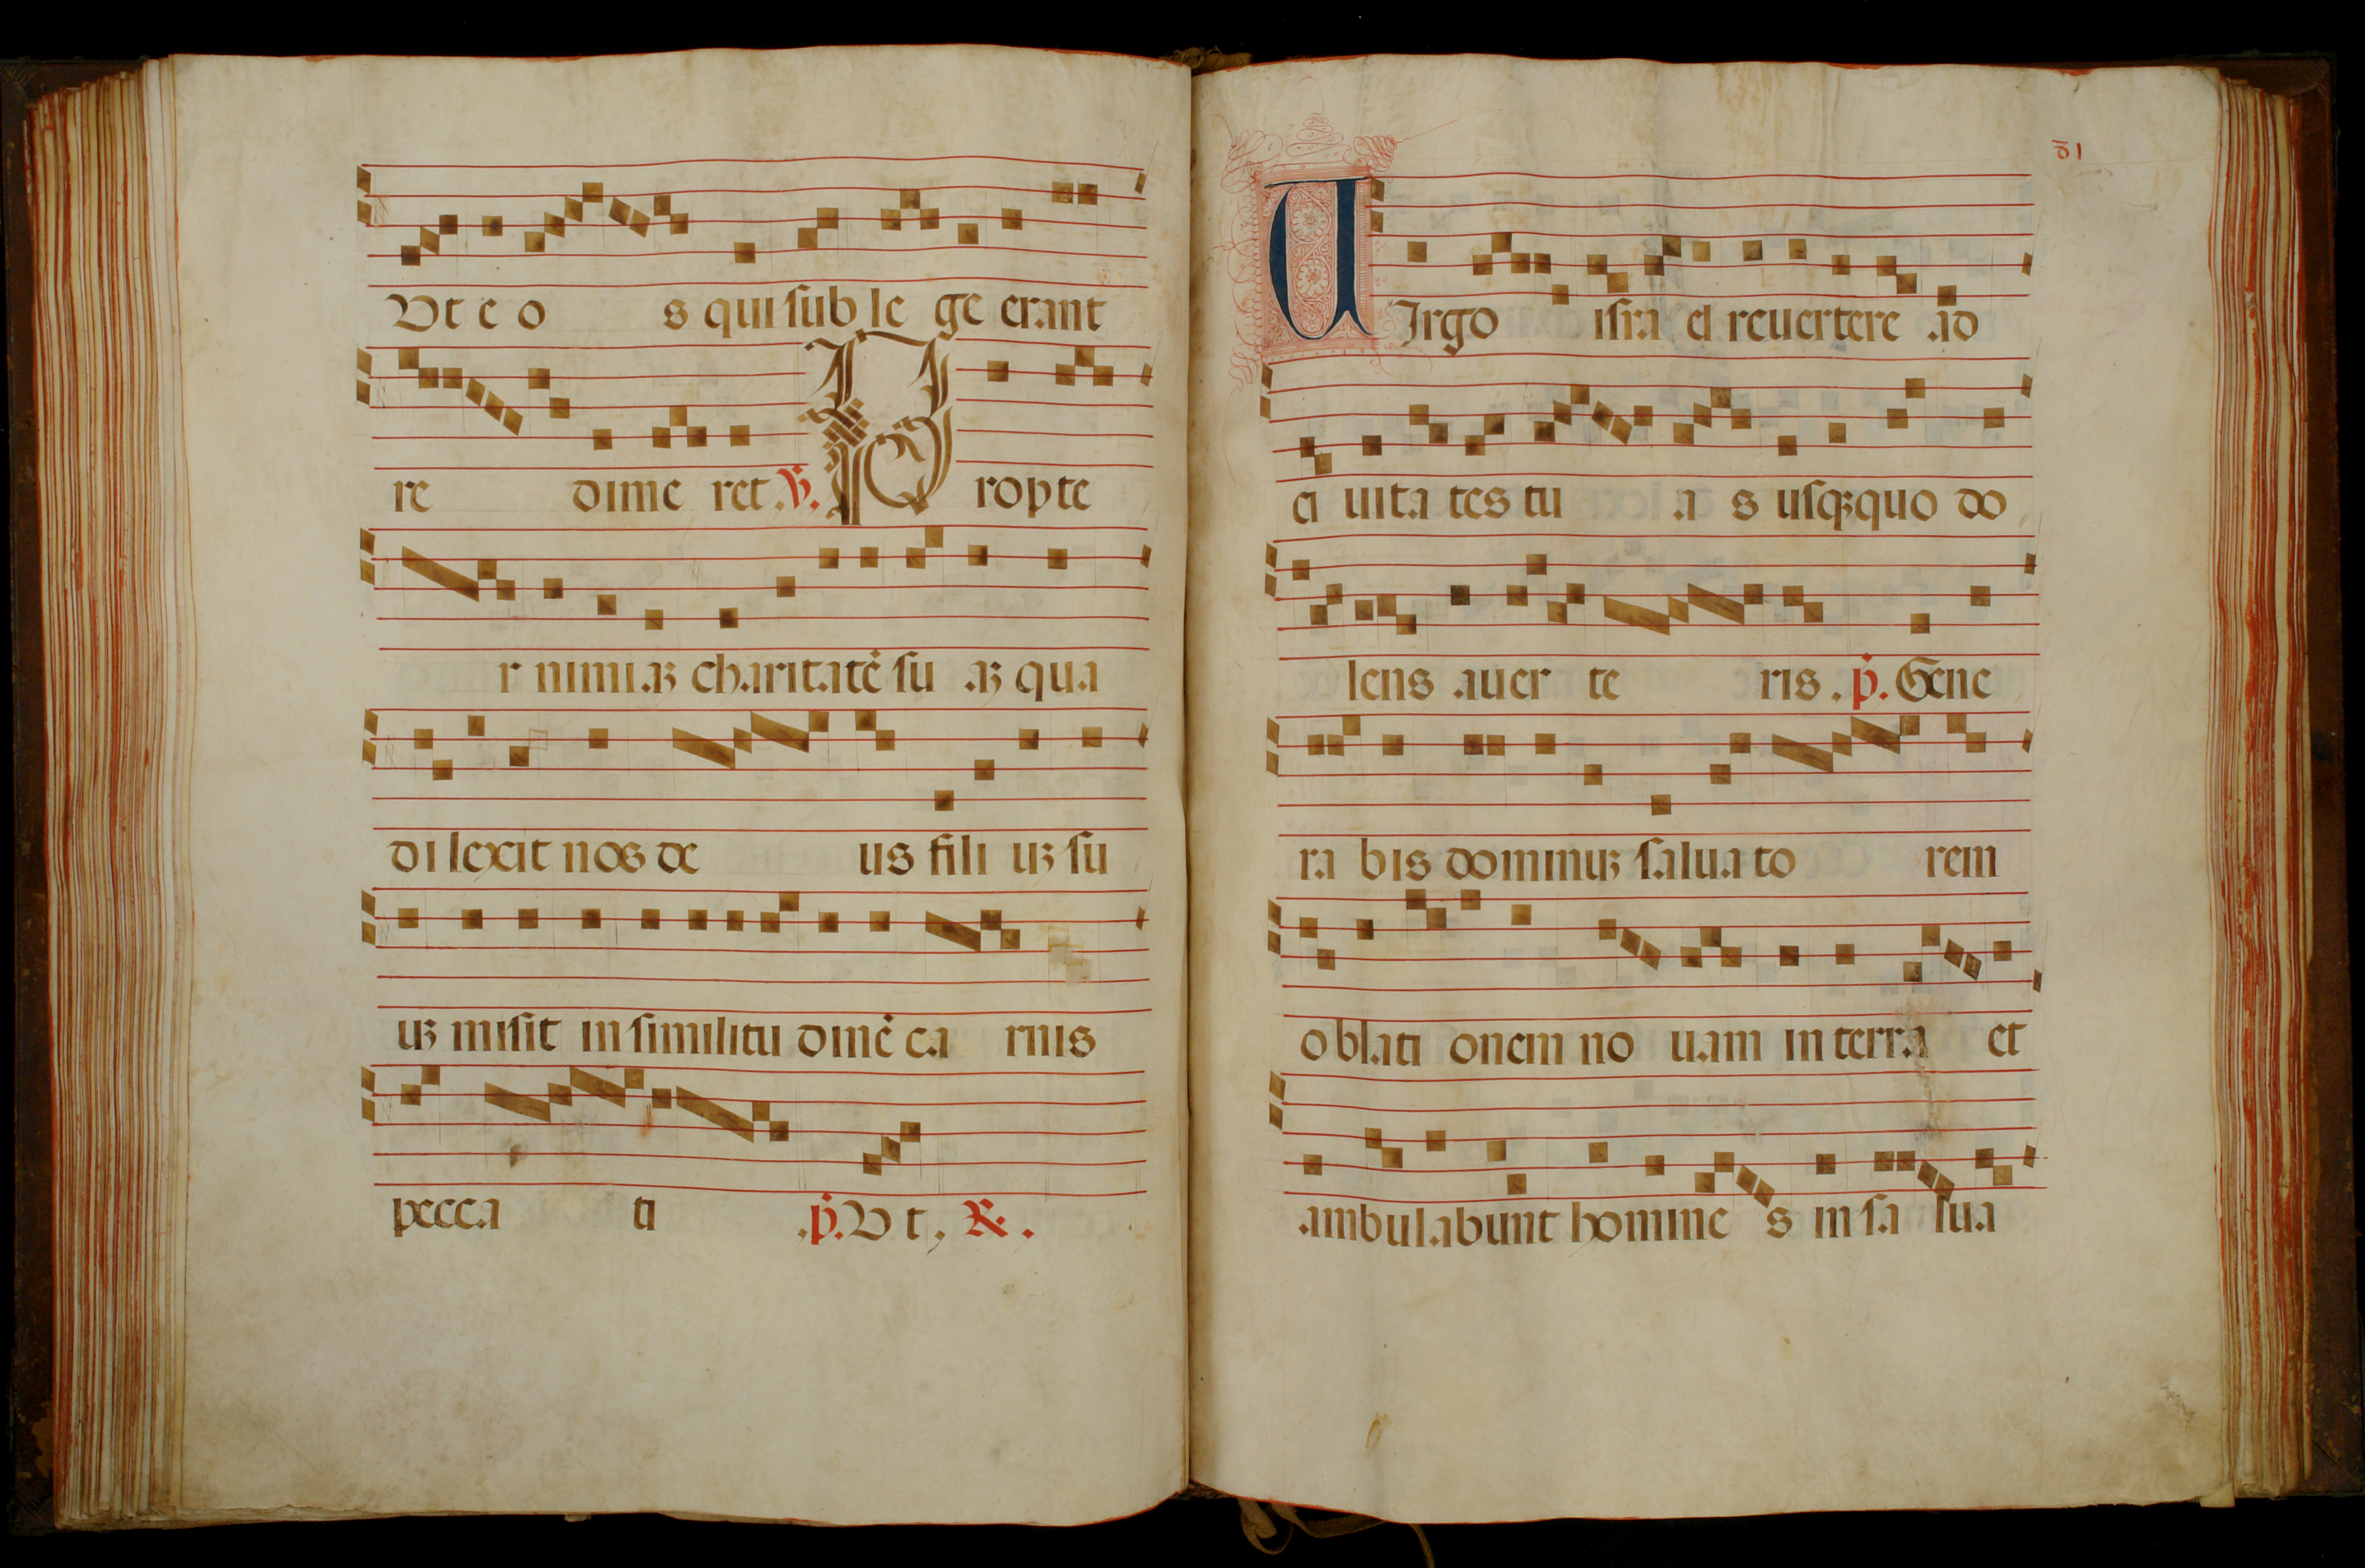 Vt e o s qui ſub le ge erant
re dime ret. ℣. P ropte
r nimiaꝫ charitatē ſu aꝫ qua
di lexit nos de us fili uꝫ ſu
uꝫ misit in ſimilitu dinē ca rnis
pecca ti .p̄. V t, ℟.
81
VIrgo iſra el reuertere ad
ci uita tes tu a s uſqꝫquo do
lens auer te ris. p̄. Gene
ra bis dominuꝫ ſaluato rem
oblati onem no uam in terra et
ambulabunt homine s in ſa lua